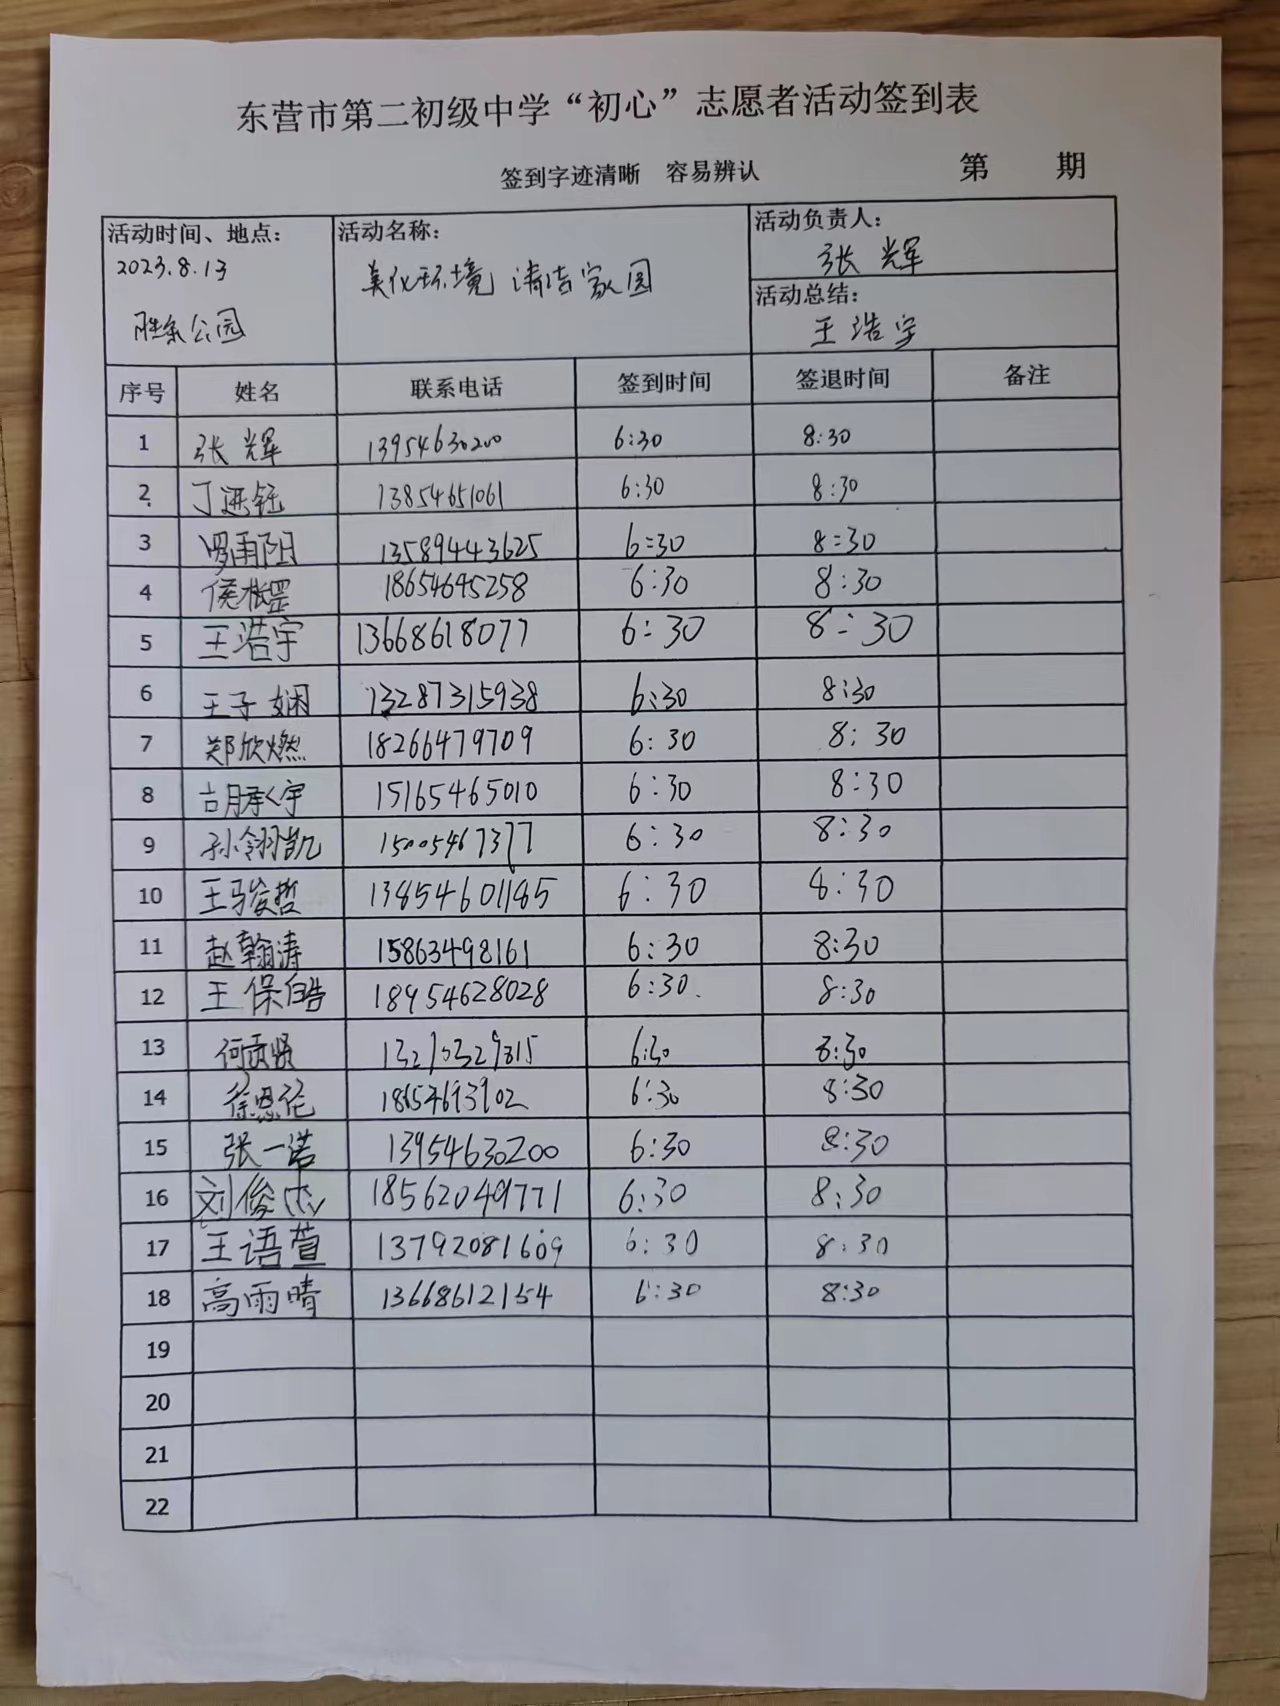 东营市第二初级中学“初心”志愿者活动签到表
签到字迹清晰 容易辨认 第 期
活动时间、地点： 活动名称： 活动负责人：
2023.8.13 美化环境 清洁家园 张辉
胜东公园 活动总结：
王浩宇
序号 姓名 联系电话 签到时间 签退时间 备注
1 张辉 13954630200 6:30 8:30
2 丁 钰 13854651061 6:30 8:30
3 罗雨阳 13589443625 6:30 8:30
4 侯 罡 18654645258 6:30 8:30
5 王浩宇 13668618077 6:30 8:30
6 王子娴 13287315938 6:30 8:30
7 郑欣燃 18266479709 6:30 8:30
8 胡承宇 15165465010 6:30 8:30
9 孙翎凯 15005467377 6:30 8:30
10 王骏哲 13854601185 6:30 8:30
11 赵翰涛 15863498161 6:30 8:30
12 王保皓 18954628028 6:30 8:30
13 何贡贤 6:30 8:30
14 徐恩伦 6:30 8:30
15 张一诺 13954630200 6:30 8:30
16 刘俊杰 18562049771 6:30 8:30
17 王语萱 13792081609 6:30 8:30
18 高雨晴 13668612154 6:30 8:30
19
20
21
22